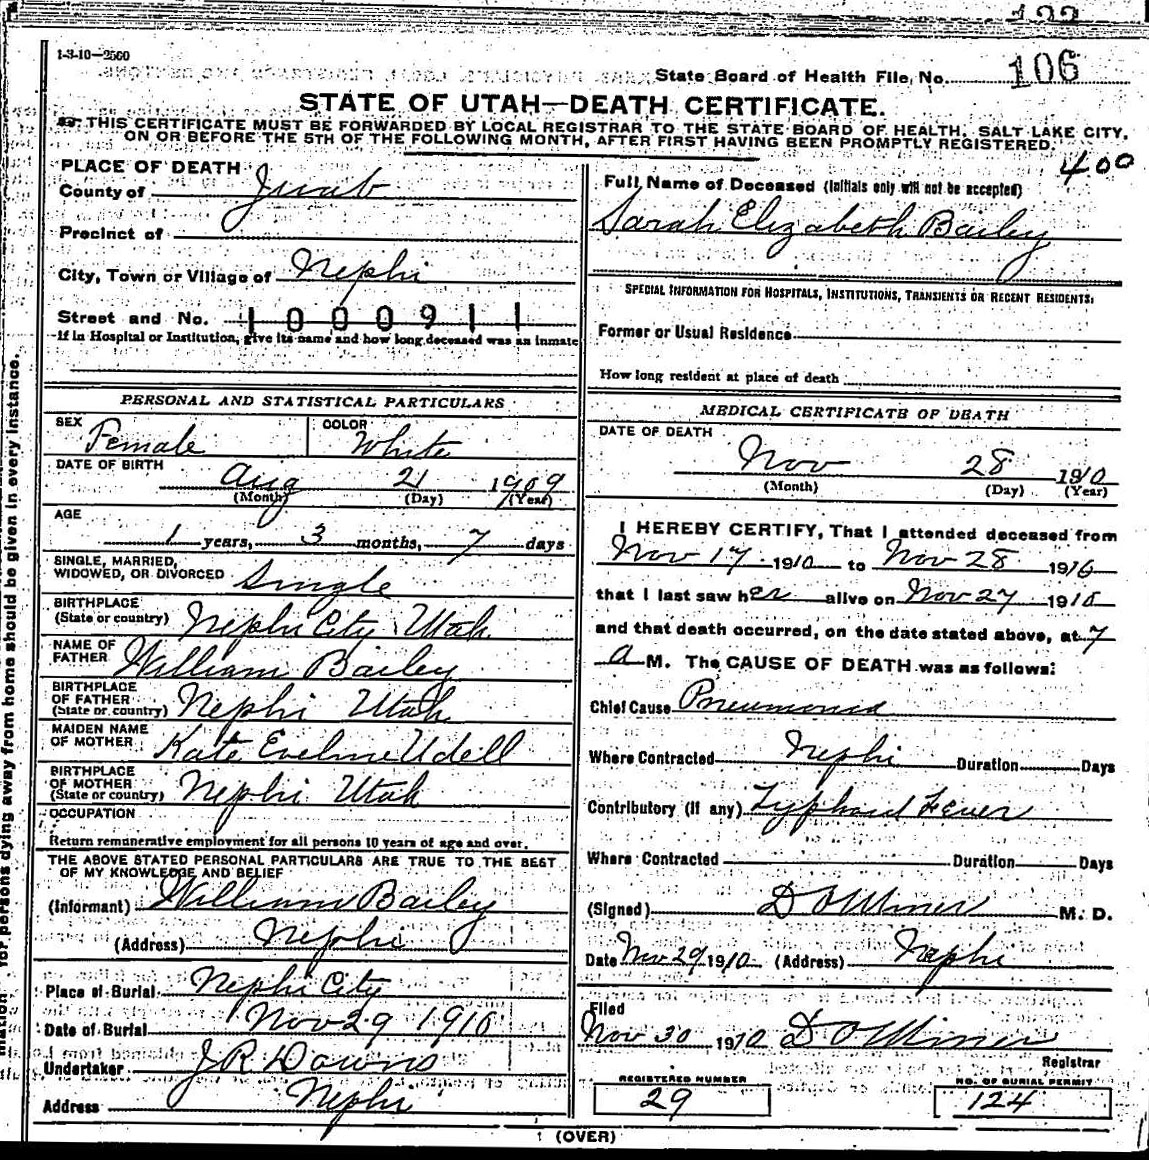 1-3-10—2500
State Board of Health File, No. 106
STATE OF UTAH—DEATH CERTIFICATE.
THIS CERTIFICATE MUST BE FORWARDED BY LOCAL REGISTRAR TO THE STATE BOARD OF HEALTH, SALT LAKE CITY,
ON OR BEFORE THE 5TH OF THE FOLLOWING MONTH, AFTER FIRST HAVING BEEN PROMPTLY REGISTERED.
400
PLACE OF DEATH
County of Juab
Precinct of
City, Town or Village of Nephi
Street and No. 1000911
If in Hospital or Institution, give its name and how long deceased was an inmate
Full Name of Deceased (Initials only will not be accepted)
Sarah Elizabeth Bailey
SPECIAL INFORMATION FOR HOSPITALS, INSTITUTIONS, TRANSIENTS OR RECENT RESIDENTS:
Former or Usual Residence
How long resident at place of death
PERSONAL AND STATISTICAL PARTICULARS
SEX Female COLOR White
DATE OF BIRTH Aug 21 1909
(Month) (Day) (Year)
AGE
1 years, 3 months, 7 days
SINGLE, MARRIED,
WIDOWED, OR DIVORCED Single
BIRTHPLACE
(State or country) Nephi City Utah
NAME OF
FATHER William Bailey
BIRTHPLACE
OF FATHER
(State or country) Nephi Utah
MAIDEN NAME
OF MOTHER Kate Eveline Udell
BIRTHPLACE
OF MOTHER
(State or country) Nephi Utah
OCCUPATION
Return remunerative employment for all persons 10 years of age and over.
THE ABOVE STATED PERSONAL PARTICULARS ARE TRUE TO THE BEST
OF MY KNOWLEDGE AND BELIEF
(Informant) William Bailey
(Address) Nephi
Place of Burial Nephi City
Date of Burial Nov 29 1910
Undertaker J R Downs
Address Nephi
MEDICAL CERTIFICATE OF DEATH
DATE OF DEATH
Nov 28 1910
(Month) (Day) (Year)
I HEREBY CERTIFY, That I attended deceased from
Nov 17 1910 to Nov 28 1910
that I last saw her alive on Nov 27 1910
and that death occurred, on the date stated above, at 7
a M. The CAUSE OF DEATH was as follows:
Chief Cause Pneumonia
Where Contracted Nephi Duration Days
Contributory (if any) Typhoid Fever
Where Contracted Duration Days
(Signed) D O Miner M. D.
Date Nov 29 1910 (Address) Nephi
Filed
Nov 30 1910 D O Miner
Registrar
REGISTERED NUMBER
29
NO. OF BURIAL PERMIT
124
(OVER)
for persons dying away from home should be given in every instance.